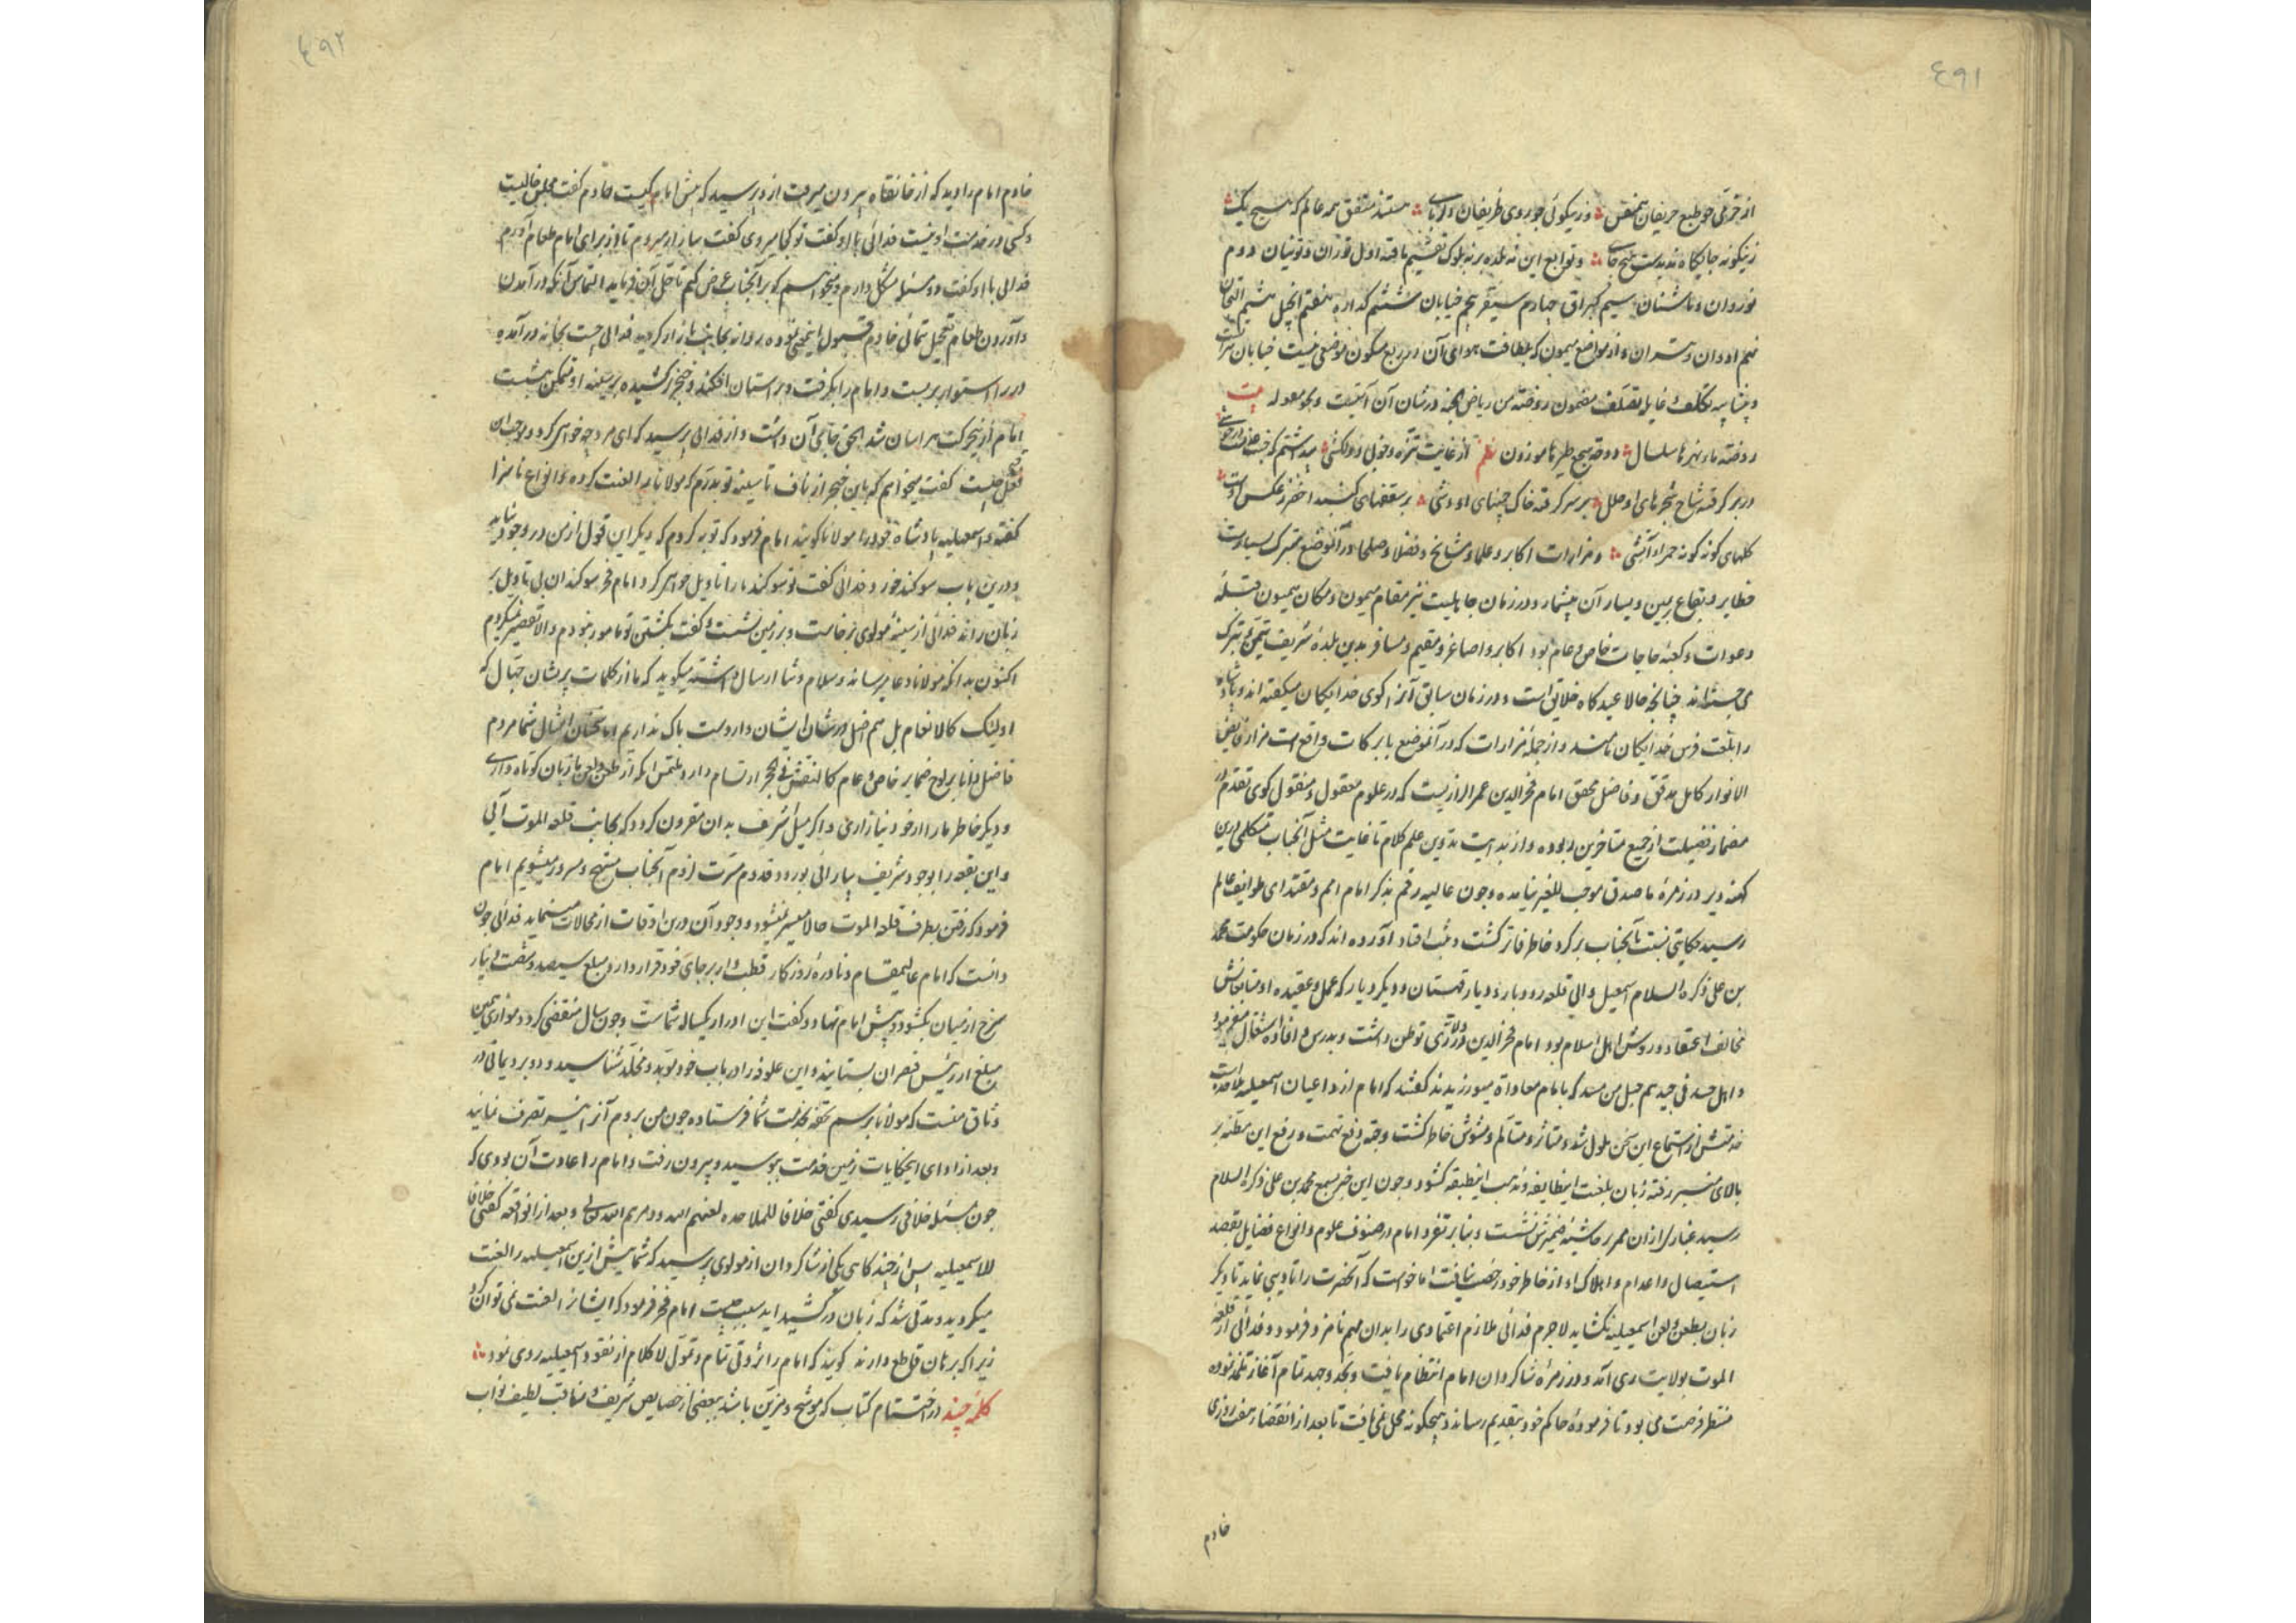 ٤٩١
از خرمی چو طبع حریفان همنفس ؞ وز نیکوئی چو روی ظریفان دلربای ؞ هستند متفق همه عالم که هیچ یک ؞
زینکونه جایکاه ندیدست هیچ جای ؞ و توابع این نه بلده بر نه بلوک تقسیم یافته اول توران و تونیان دوم
غوروان و باشتان سیم کمبراق چهارم سبقر پنجم خیابان ششم کذاره هفتم انجیل هشتم النجان
نهم ادوان و تیزان و از مواضع میمون که بلطافت هوای آن در ربع مسکون موضعی نیست خیابان هرات
و بیشایبه تکلف و غایله تصلف مضمون روضة من ریاض الجنة در شان آن آیتیست و نحو معوله بیت
روضة ماء نهرها سلسال ؞ دوحة سجع طیرها موزون نظم از غایت تنزه و خوبی و دلکشی ؞
در بر کرفته شاخ شجرهای او حلل ؞ بر سر کرفته خاک چمنهای او وشی ؞ بر سقفهای کنبد اخضر ز عکس اوست ؞
کلهای کونه کونه حمراء آتشی ؞ و مزارات اکابر و علما و مشایخ و فضلا و صلحا در آنموضع متبرک بسیارست
حظایر و بقاع بر یمین و یسار آن بیشمار و در زمان جاهلیت نیز مقام میمون و مکان همیون قبله
دعوات و کعبه حاجات خاص و عام بود اکابر و اصاغر و مقیم و مسافر بدین بلده شریف تیمن و تبرک
می جسته اند چنانچه حالا عیدکاه خلایق است و در زمان سابق آنرا کوی خدایکان میکفته اند و پادشاه
را بلغت فرس خدایکان نامند و از جمله مزارات که در آنموضع با برکات واقع است مزار فایض
الانوار کامل مدقق و فاضل محقق امام فخر الدین عمر الرازیست که در علوم معقول و منقول کوی تقدم در
مضمار فضیلت از جمیع متاخرین ربوده و از بدایت تدوین علم کلام تا غایت مثل آنجناب متکلمی درین
کهنه دیر در زمره ما صدق موجب للغیر نیامده و چون عالیه رقم بذکر امام امم و مقتدای طوایف عالم
رسید حکایتی نسبت بآنجناب بر کرد خاطر فاتر کشت و ثبت افتاد آورده اند که در زمان حکومت محمد
بن علی ذکره السلام اسمعیل والی قلعه رودبار و دیار قهستان و دیکر دیار که عمل و عقیده او و متابعانش
مخالف اعتقاد و روش اهل اسلام بود امام فخر الدین در ولایت ری توطن داشت و بدرس و افاده اشتغال میفرمود
و اهل حسد فی جیدهم حبل من مسد که با امام معاداة میورزیدند کفتند که امام از داعیان اسمعیلیه ملاحده است
خدمتش از استماع این سخن ملول شد و متاثر و متالم و مشوش خاطر کشت و جهة دفع تهمت و رفع این مظنه بر
بالای منبر رفته زبان بلغنت اینطایفه و مذهب اینطبقه کشود و چون این خبر بسمع محمد بن علی ذکره السلام
رسید غباری از ان ممر بر حاشیه ضمیرش نشست و بنابر تفرد امام در صنوف علوم و انواع فضایل بقصد
استیصال و اعدام و اهلاک او از خاطر خود رخصت نیافت اما خواست که آنحضرت را تادیبی نماید تا دیکر
زبان بطعن و لعن اسمعیلیه نکشاید لاجرم فدائی ملازم اعتمادی را بدان مهم نامزد فرمود و فدائی از قلعه
الموت بولایت ری آمد و در زمره شاکردان امام انتظام یافت و بجد و جهد تمام آغاز تلمذ نموده
منتظر فرصت می بود تا فرموده حاکم خود بتقدیم رساند و هیچکونه محل نمی یافت تا بعد از انقضاء هفت روزی
خادم
٤٩٢
خادم امام را دید که از خانقاه بیرون میرفت ازو پرسید که پیش امام کیست خادم کفت مجلس خالیست
و کسی در خدمت او نیست فدائی با او کفت تو کجا میروی کفت ببازار میروم تا از برای امام طعام آورم
فدائی با او کفت دو مسئله مشکل دارم و میخواهم که بر آنجناب عرض کنم تا حل آن فرماید التماس آنکه در آمدن
و آوردن طعام تعجیل ننمائی خادم قبول اینمعنی نموده روانه بجانب بازار کردید فدائی جست بخانه در آمده
در را استوار بر بست و امام را بکرفت و بر استان افکند و خنجر کشیده بر سینه او متمکن بنشست
امام ازین حرکت هراسان شد الحق جای آن داشت و از فدائی پرسید که ای مرد چه خواهی کرد و موجب این
فعل چیست کفت میخواهم که باین خنجر از ناف تا سینه تو بدرم که مولانا را لعنت کرده و انواع ناسزا
کفته و اسمعیلیه پادشاه خود را مولانا کویند امام فرمود که توبه کردم که دیکر این قول از من در وجود نیاید
و درین باب سوکند خورد فدائی کفت تو سوکند را تاویل خواهی کرد امام فخر سوکندان بی تاویل بر
زبان راند فدائی از سینه مولوی برخاست و بر زمین نشست و کفت بکشتن تو مامور نبودم والا تقصیر نمیکردم
اکنون بدانکه مولانا دعا میرساند و سلام و ثنا ارسال داشته میکوید که ما از کلمات پریشان جهال که
اولئک کالانعام بل هم اضل در شان ایشان واردست باک نداریم اما سخنان امثال شما مردم
فاضل دانا بر لوح ضمایر خاص و عام کالنقش فی الحجر ارتسام دارد ملتمس انکه از طعن و لعن ما زبان کوتاه داری
و دیکر خاطر ما را از خود نیازاری و اکر میل شریف بدان مقرون کردد که بجانب قلعه الموت آیی
و این بقعه را بوجود شریف بیارائی بورود قدوم مسرت لزوم آنجناب مبتهج و مسرور میشویم امام
فرمود که رفتن بطرف قلعه الموت حالا میسر نمیشود و وجود آن درین اوقات از محالات مینماید فدائی چون
دانست که امام عالیمقام و نادره روزکار قطب وار بر جای خود قرار دارد مبلغ سیصد و شصت دینار
سرخ از میان بکشود و پیش امام نهاد و کفت این ادرار یکساله شماست و چون سال منقضی کردد موازی همین
مبلغ از رئیس قصران بستانید و این علوفه را در باب خود مؤبد و مخلد شناسید و دو برد یمانی در
وثاق منست که مولانا برسم تحفه بخدمت شما فرستاده چون من بروم آنرا نیز تصرف نمایید
و بعد از ادای اینحکایات زمین خدمت ببوسید و بیرون رفت و امام را عادت آن بودی که
چون بمسئله خلافی رسیدی کفتی خلافا للملاحده لعنهم الله و دمرهم الله تعالی و بعد از انواقعه کفتی خلافا
للاسمعیلیه پس از چندکاهی یکی از شاکردان از مولوی پرسید که شما پیش ازین اسمعیلیه را لعنت
میکردید و مدتی شد که زبان در کشیده اید سبب چیست امام فخر فرمود که ایشانرا لعنت نمی توان کرد
زیرا که برهان قاطع دارند کویند که امام را ثروتی تمام و تمول لا کلام از نقود اسمعیلیه روی نمود ؞
کلمه چند در اختتام کتاب که موشح و مزین باشد ببعضی از خصایص شریف و مناقب لطیف نواب